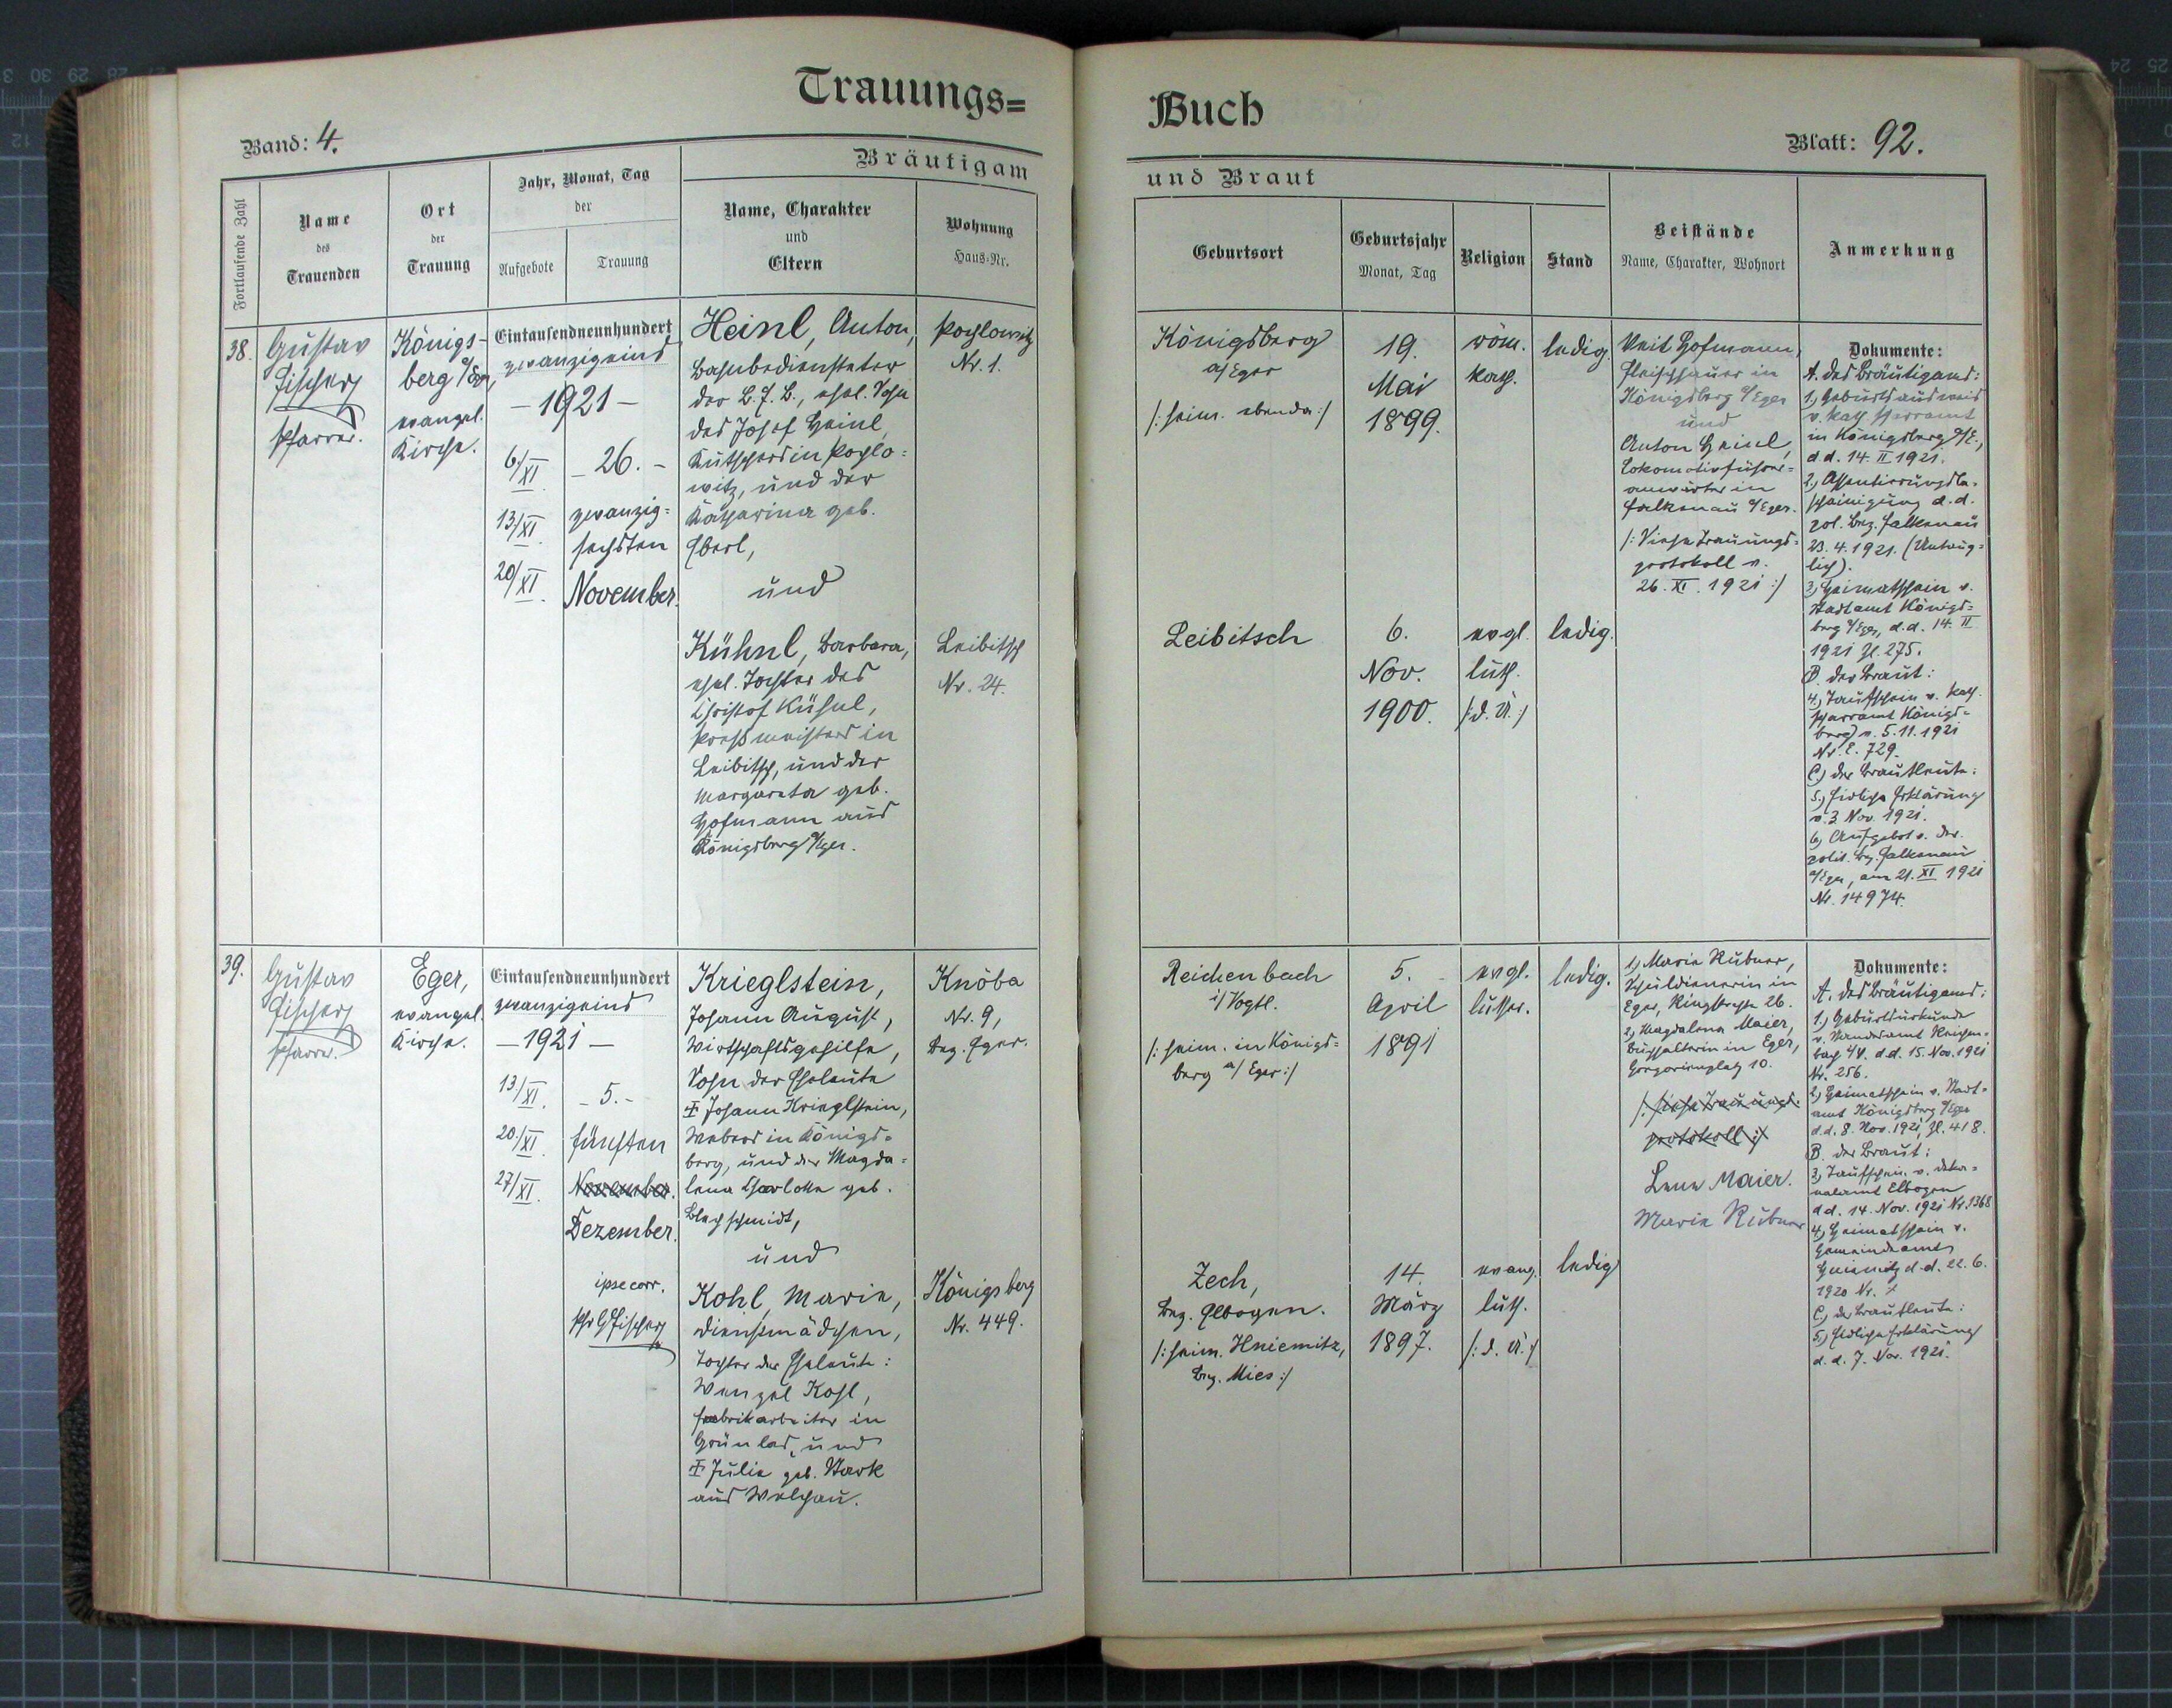 Trauungs=
Band: 4.
Bräutigam
Fortlaufende Zahl
Name
des
Trauenden
Ort
der
Trauung
Jahr, Monat, Tag
der
Aufgebote
Trauung
Name, Charakter
und
Eltern
Wohnung
Haus-Nr.
38.
Gustav
Fischer
Pfarrer.
Königs-
berg a/Eger,
evangel.
Kirche.
Eintausendneunhundert
zwanzigeins
– 1921 –
6/XI.
13/XI.
20/XI.
– 26. –
zwanzig=
sechsten
November.
Heinl, Anton,
Bahnbediensteter
der B.E.B., ehel. Sohn
des Josef Heinl,
Kutschers in Pochlo=
witz, und der
Katharina geb.
Eberl,
und
Kühnl, Barbara,
ehel. Tochter des
Christof Kühnl,
Preßmeisters in
Leibitsch, und der
Margareta geb.
Hofmann aus
Königsberg a/Eger.
Pochlowitz
Nr. 1.
Leibitsch
Nr. 24.
39.
Gustav
Fischer
Pfarrer.
Eger,
evangel.
Kirche.
Eintausendneunhundert
zwanzigeins
– 1921 –
13/XI.
20/XI.
27/XI.
– 5. –
fünften
November.
Dezember.
ipse corr.
Pfr GFischer
Krieglstein,
Johann August,
Wirtschaftsgehilfe,
Sohn der Eheleute
‡ Johann Krieglstein,
Webers in Königs=
berg, und der Magda=
lena Charlotte geb.
Blechschmidt,
und
Kohl, Marie,
Dienstmädchen,
Tochter der Eheleute:
Wenzel Kohl,
Fabrikarbeiter in
Grünlas, und
‡ Julie geb. Stark
aus Welchau.
Knöba
Nr. 9,
Bez. Eger.
Königsberg
Nr. 449.
Buch
Blatt: 92.
und Braut
Geburtsort
Geburtsjahr
Monat, Tag
Religion
Stand
Beistände
Name, Charakter, Wohnort
Anmerkung
Königsberg
a/Eger
/: heim. ebenda :/
19.
Mai
1899.
röm.
kath.
ledig.
Veit Hofmann,
Fleischhauer in
Königsberg a/Eger
und
Anton Heinl,
Lokomotivführer=
anwärter in
Falkenau a/Eger.
/: Siehe Trauungs=
protokoll v.
26. XI. 1921 :/
Dokumente:
A. des Bräutigams:
1.) Geburtsausweis
v. kath. Pfarramt
in Königsberg a/E.,
d.d. 14. II 1921.
2.) Assentierungsbe-
scheinigung d.d.
pol. Bez. Falkenau
23. 4. 1921. (Untaug=
lich).
3.) Heimatschein v.
Stadtamt Königs=
berg a/Eger, d.d. 14. II
1921 Zl. 275.
B. der Braut:
4.) Taufschein v. kath.
Pfarramt Königs=
berg v. 5. 11. 1921
Nr. E. 729.
C.) der Brautleute:
5.) Eidliche Erklärung
v. 3 Nov. 1921.
6.) Aufgebot v. der
polit. Bez. Falkenau
a/Eger, am 21. XI 1921
Nr. 14974.
Leibitsch
6.
Nov.
1900.
evgl.
luth.
/: d. Ü. :/
ledig.
Reichenbach
i/ Vogtl.
/: heim. in Königs=
berg a/ Eger :/
5.
April
1891
evgl.
luther.
ledig.
1.) Marie Rubner,
Schuldienerin in
Eger, Ringstraße 26.
2.) Magdalena Maier,
Buchhalterin in Eger,
Gregorienplatz 10.
/: siehe Trauungs-
protokoll :/
Lene Maier.
Marie Rubner
Dokumente:
A. des Bräutigams:
1.) Geburtsurkunde
v. Standesamt Reichen-
bach i/V. d.d. 15. Nov. 1921
Nr. 256.
2.) Heimatschein v. Stadt=
amt Königsberg a/Eger
d.d. 8. Nov. 1921, Zl. 418.
B. der Braut:
3.) Taufschein v. Deka=
nalamt Elbogen
d.d. 14. Nov. 1921 Nr. 1368
4.) Heimatschein v.
Gemeindeamt
Hniemitz d.d. 22. 6.
1920 Nr. 7
C.) der Brautleute:
5.) Eidliche Erklärung
d.d. 7. Nov. 1921.
Zech,
Bez. Elbogen.
/: heim. Hniemitz,
Bez. Mies :/
14.
März
1897.
evang.
luth.
/: d. Ü. :/
ledig